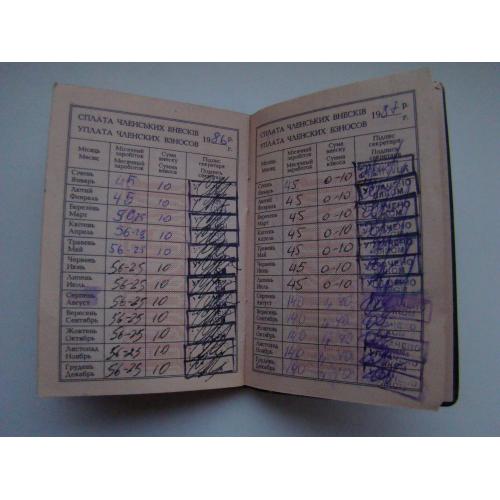 СПЛАТА ЧЛЕНСЬКИХ ВНЕСКІВ
УПЛАТА ЧЛЕНСКИХ ВЗНОСОВ
1986 р. г.
Місяць Месяц
Місячний заробіток Месячный заработок
Сума внеску Сумма взноса
Підпис секретаря Подпись секретаря
Січень Январь 45 10
Лютий Февраль 45 10
Березень Март 50-25 10
Квітень Апрель 56-25 10
Травень Май 56-25 10
Червень Июнь 56-25 10
Липень Июль 56-25 10
Серпень Август 56-25 10
Вересень Сентябрь 56-25 10
Жовтень Октябрь 56-25 10
Листопад Ноябрь 56-25 10
Грудень Декабрь 56-25 10
СПЛАТА ЧЛЕНСЬКИХ ВНЕСКІВ
УПЛАТА ЧЛЕНСКИХ ВЗНОСОВ
1987 р. г.
Місяць Месяц
Місячний заробіток Месячный заработок
Сума внеску Сумма взноса
Підпис секретаря Подпись секретаря
Січень Январь 45 0-10
Лютий Февраль 45 0-10
Березень Март 45 0-10
Квітень Апрель 45 0-10
Травень Май 45 0-10
Червень Июнь 45 0-10
Липень Июль 45 0-10
Серпень Август 140
Вересень Сентябрь 140
Жовтень Октябрь 140
Листопад Ноябрь 140
Грудень Декабрь 140